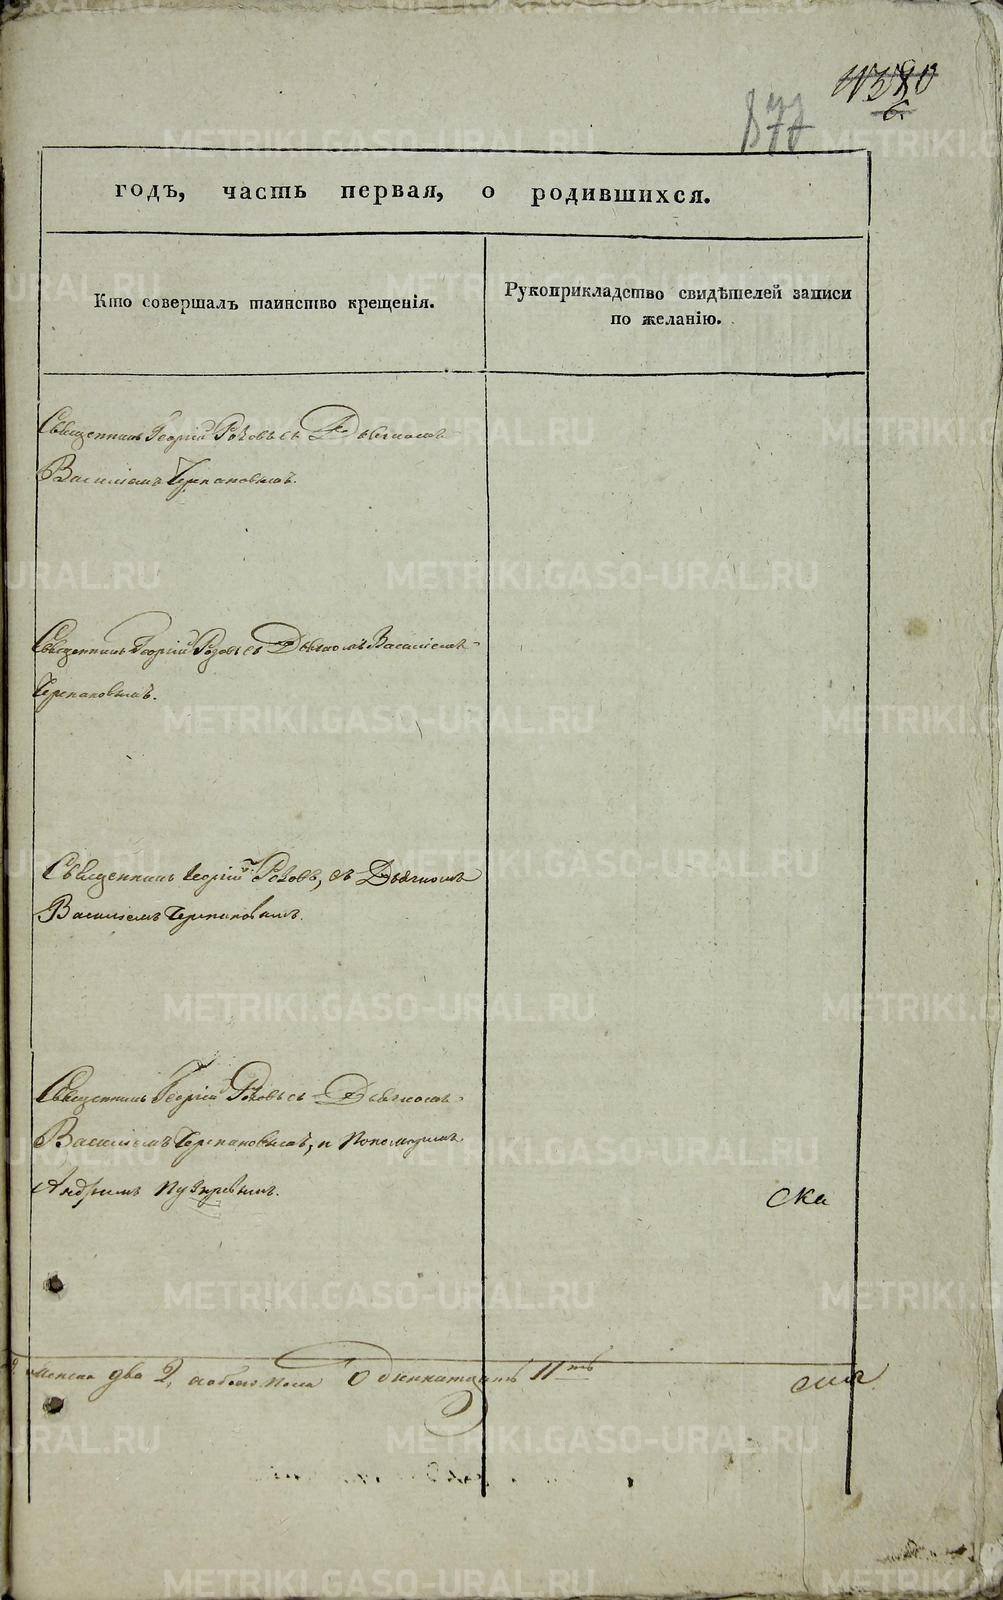 877
годъ, часть первая, о родившихся.
Кто совершалъ таинство крещенія.
Рукоприкладство свидѣтелей записи
по желанію.
Священникъ Георгій Розовъ съ Дьячкомъ
Василіемъ Черпановымъ.
Священникъ Георгій Розовъ съ Дьячкомъ Василіемъ
Черпановымъ.
Священникъ Георгій Розовъ, съ Дьячкомъ
Василіемъ Черпановымъ.
Священникъ Георгій Розовъ съ Дьячкомъ
Василіемъ Черпановымъ, и Пономаремъ
Андреемъ Пузыревымъ.
ска
женска два 2, а обоего пола Одиннатцать 11ть
METRIKI.GASO-URAL.RU